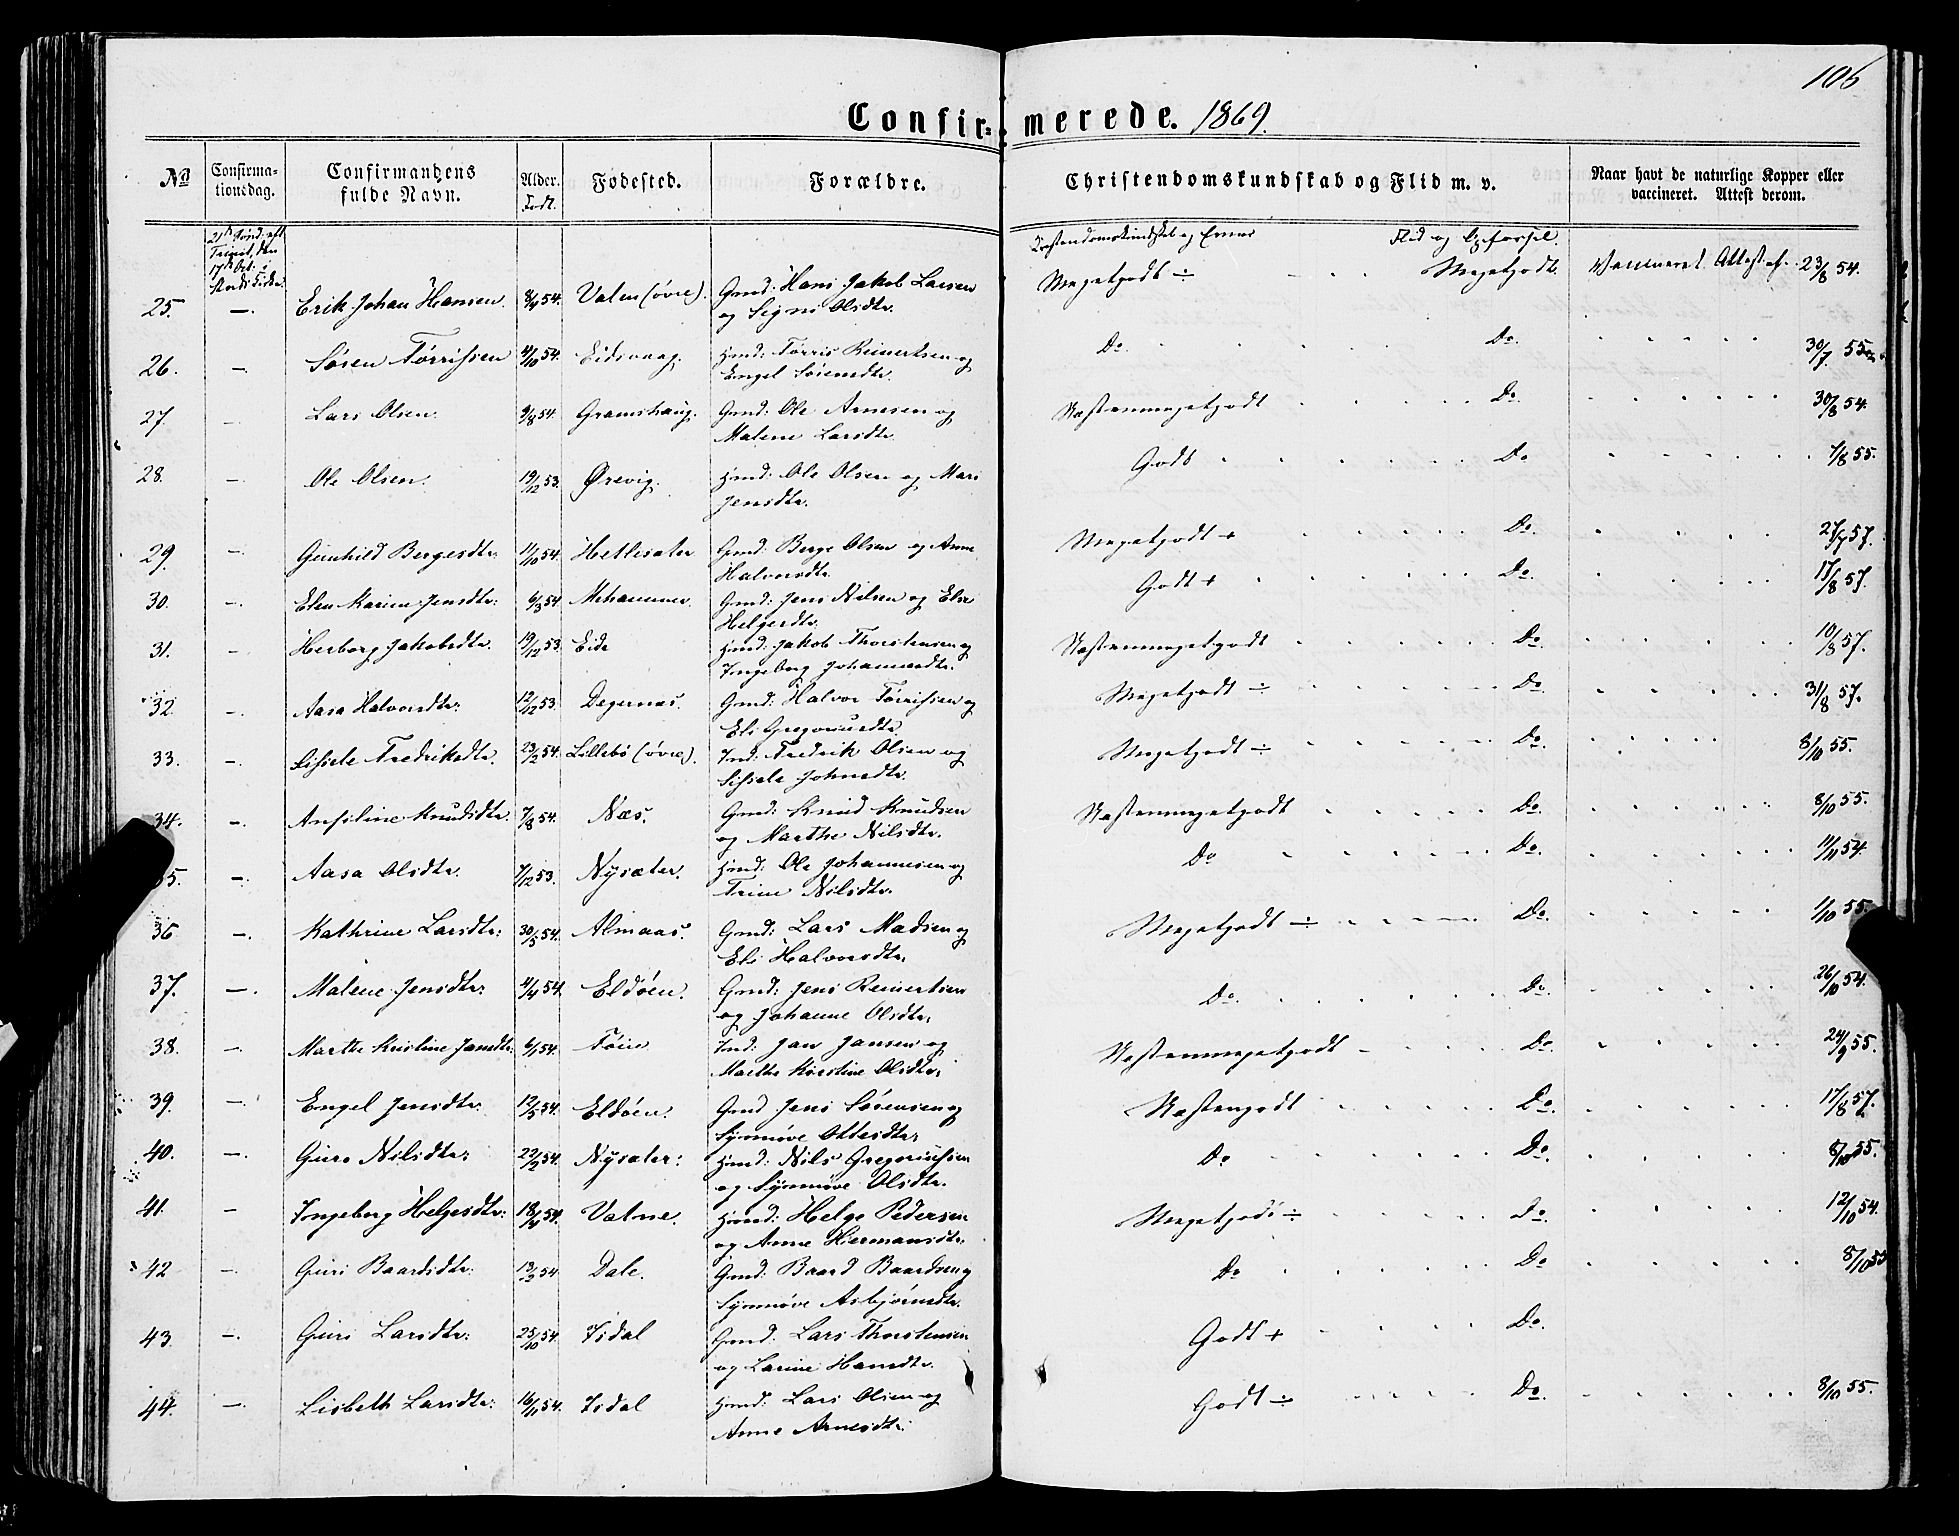 106
Confir= merede. 1869.
No
Confirma-
tionsdag.
Confirmandens
fulde Navn.
Alder.
Født.
Fødested.
Forældre.
Christendomskundskab og Flid m. v.
Naar havt de naturlige Kopper eller
vaccineret. Attest derom.
21de Sønd. eft.
Trinit., den
17de Oct. i
Flid og Opførsel.
25. — Erik Johan Hansen 8/4 54. Vatne (övre). Gmd: Hans Jakob Larsen
og Signi Olsdtr.
Megetgodt ÷ Megetgodt. Vaccineret Attest af 23/8 54.
26. — Sören Törrissen 4/10 54. Eidsvaag. Hmd: Törris Reinertsen og
Engel Sörensdtr.
Do. Do. 30/7 55
27. — Lars Olsen. 9/8 54. Gramshaug. Gmd: Ole Arnesen og
Malene Larsdtr.
Næstenmegetgodt Do. 30/8 54.
28. — Ole Olsen. 19/12 53. Ørevig. Hmd: Ole Olsen og Mari
Jensdtr.
Godt Do 7/8 55.
29. — Gunhild Bergesdtr. 11/10 54. Hetlesæter Gmd: Berge Olsen og Anne
Halvorsdtr.
Megetgodt + Do 57.
30. — Elen Karine Jensdtr: 6/3 54. Mehammer. Gmd: Jens Nilsen og Elsa
Helgesdtr.
Godt + Do. 17/8 57.
31. — Herborg Jakobsdtr. 19/12 53. Eide Hmd: Jakob Thorstensen og
Ingeborg Johannesdtr.
Næstenmegetgodt Do. 10/8 57.
32. — Aasa Halvorsdtr: 12/12 53. Degernæs. Gmd: Halvor Törrissen og
Eli Gregoriusdtr.
Megetgodt ÷ Do 31/8 57.
33. — Sissele Fredriksdtr. 23/2 54. Lillebö (övre). Ind: Fredrik Olsen og
Sissele Johnsdtr.
Megetgodt ÷ Do. 8/10 55.
34. — Anfiline Knudsdtr. 7/8 54. Næs. Gmd: Knud Knudsen
og Marthe Nilsdtr.
Næstenmegetgodt Do. 8/10 55.
35. — Aasa Olsdtr. 7/12 53. Nysæter. Hmd: Ole Johannesen og
Trine Nilsdtr.
Do Do. 11/11 54.
36 — Kathrine Larsdtr: 30/5 54. Almaas. Gmd: Lars Madsen og
Eli Halvorsdtr.
Megetgodt ÷ Do. 1/10 55.
37. — Malene Jensdtr: 4/4 54. Eldöen. Gmd: Jens Reinertsen
og Johanne Olsdtr.
Do. Do. 26/10 54.
38. — Marthe Kristine Jansdtr: 6/1 54. Föien Ind: Jan Jansen og
Marthe Kirstine Olsdtr.
Næstenmegetgodt Do. 24/9 55.
39. — Engel Jensdtr. 12/5 54. Eldöen. Gmd Jens Sörensen og
Synnöve Ottesdtr.
Næstengodt Do. 17/8 57.
40. — Guro Nilsdtr: 22/2 54. Nysæter: Hmd: Nils Gregoriussen
og Synnöve Olsdtr.
Do Do. 8/10 55.
41. — Ingeborg Helgesdtr: 18/4 54. Vatne. Hmd: Helge Pedersen
og Anne Hermansdtr.
Megetgodt ÷ Do. 12/10 54.
42 — Guri Baardsdtr: 13/3 54 Dale. Gmd: Baard Baardsen og
Synnöve Asbjörnsdtr.
Do Do 8/10 55
43. — Guri Larsdtr: 25/10 54. Isdal Gmd. Lars Thorstensen
og Larine Hansdtr.
Godt + Do.
44. — Lisbeth Larsdtr: 16/11 54. Isdal Hmd: Lars Olsen og
Anne Arnesdtr:
Godt ÷ Do. 8/10 55.